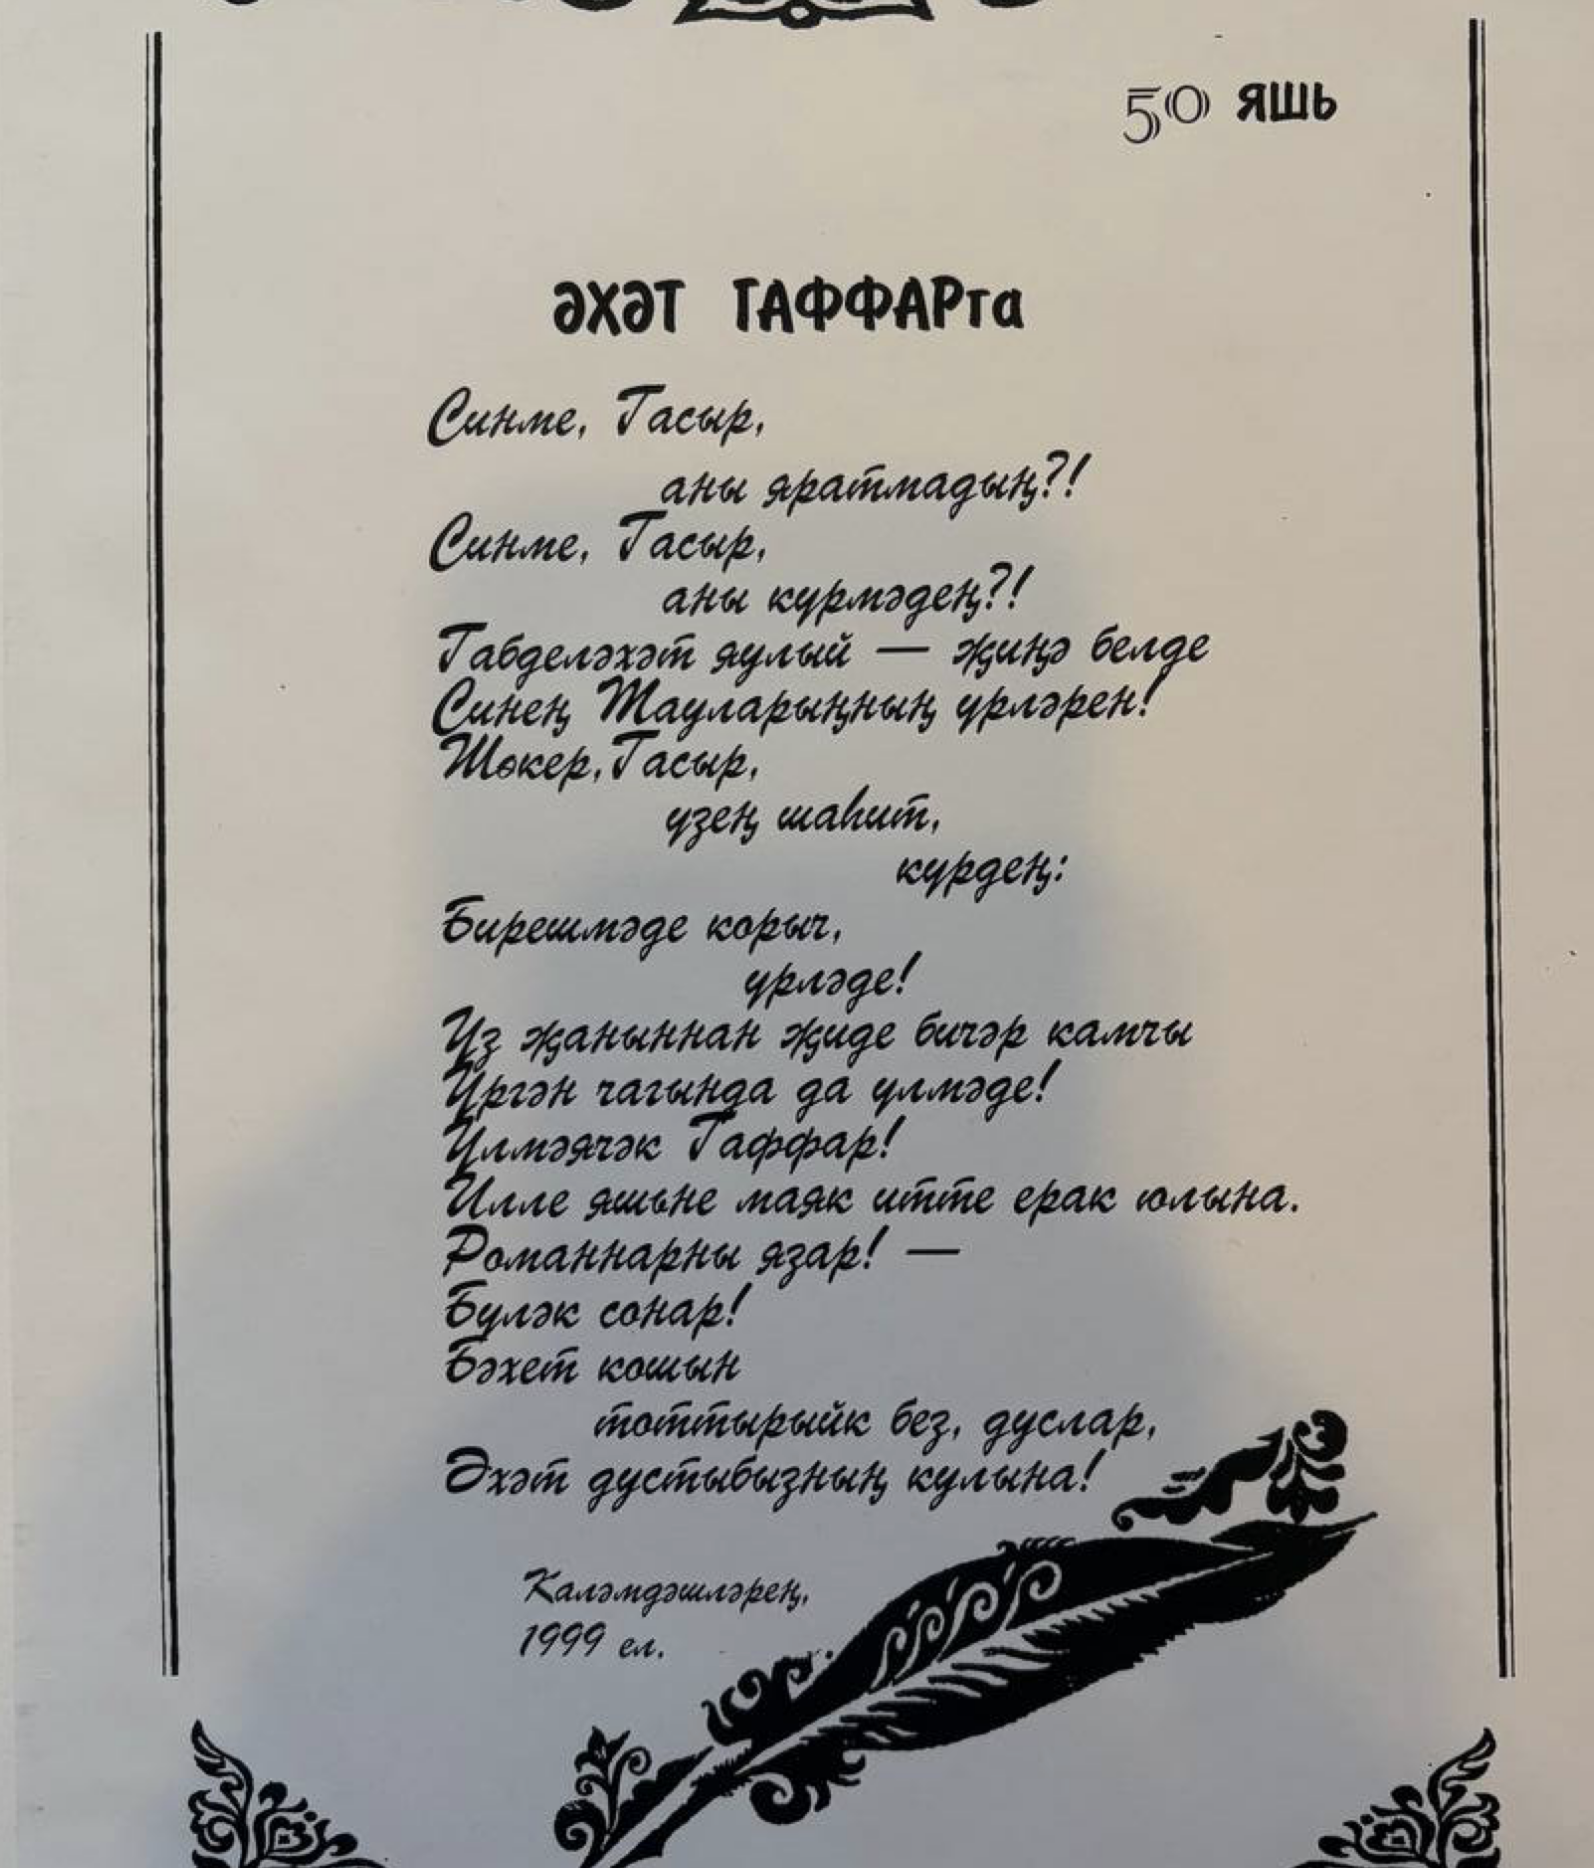 50 ЯШЬ
ӘХӘТ ГАФФАРга
Синме, Гасыр,
аны яратмадың?!
Синме, Гасыр,
аны күрмәдең?!
Габделәхәт яулый — җиңә белде
Синең Тауларыңның үрләрен!
Шөкер, Гасыр,
үзең шаһит,
күрдең:
Бирешмәде корыч,
үрләде!
Үз җаныннан җиде бичәр камчы
Үргән чагында да үлмәде!
Үлмәячәк Гаффар!
Илле яшьне маяк итте ерак юлына.
Романнарны язар! —
Бүләк сонар!
Бәхет кошын
тоттырыйк без, дуслар,
Әхәт дустыбызның кулына!
Каләмдәшләрең,
1999 ел.